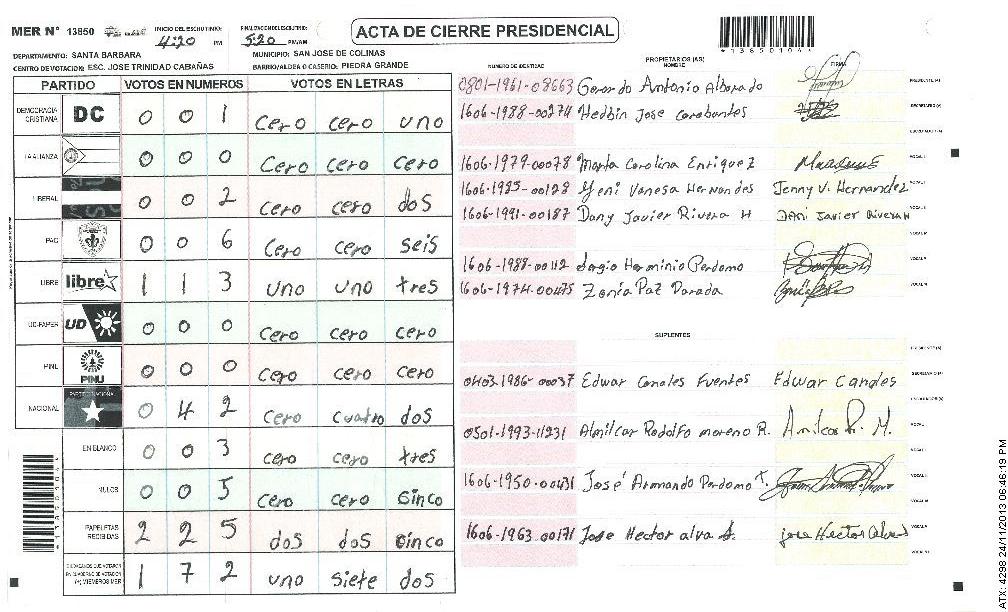 MER N° 13850 INICIO DEL ESCRUTINIO: 4:20 PM FINALIZACION DEL ESCRUTINIO: 5:20 PM/AM
ACTA DE CIERRE PRESIDENCIAL
DEPARTAMENTO: SANTA BARBARA MUNICIPIO: SAN JOSE DE COLINAS
CENTRO DE VOTACION: ESC. JOSE TRINIDAD CABAÑAS BARRIO/ALDEA O CASERIO: PIEDRA GRANDE
PARTIDO VOTOS EN NUMEROS VOTOS EN LETRAS
DEMOCRACIA CRISTIANA DC 0 0 1 cero cero uno
LA ALIANZA 0 0 0 cero cero cero
LIBERAL 0 0 2 cero cero dos
PAC 0 0 6 cero cero seis
LIBRE libre 1 1 3 uno uno tres
UD-FAPER UD 0 0 0 cero cero cero
PINU PINU 0 0 0 cero cero cero
NACIONAL 0 4 2 cero cuatro dos
EN BLANCO 0 0 3 cero cero tres
NULOS 0 0 5 cero cero cinco
PAPELETAS RECIBIDAS 2 2 5 dos dos cinco
CIUDADANOS QUE VOTARON EN CUADERNO DE VOTACION (+) MIEMBROS MER 1 7 2 uno siete dos
NUMERO DE IDENTIDAD PROPIETARIOS (AS) NOMBRE FIRMA
0801-1961-08663 Gerardo Antonio Alborado PRESIDENTE (A)
1606-1988-00274 Hedbin Jose Carabantes SECRETARIO (A)
ESCRUTADOR (A)
1606-1979-00078 Marta Carolina Enriquez VOCAL I
1606-1985-00128 Yeni Vanesa Hernandes Jenny V. Hernandez
1606-1991-00187 Dany Javier Rivera H Dani Javier Rivera H
1606-1988-00112 Sergio Herminio Perdomo
1606-1974-00475 Zonia Paz Parada
SUPLENTES
PRESIDENTE (A)
0403-1986-00037 Edwar Canales Fuentes Edwar Canales SECRETARIO (A)
0501-1993-11231 Almilcar Rodolfo moreno R. Amilcar R. M.
1606-1950-00431 José Armando Perdomo T.
1606-1963-00171 Jose Hector alva
ATX: 4298 24/11/2013 06:46:19 PM